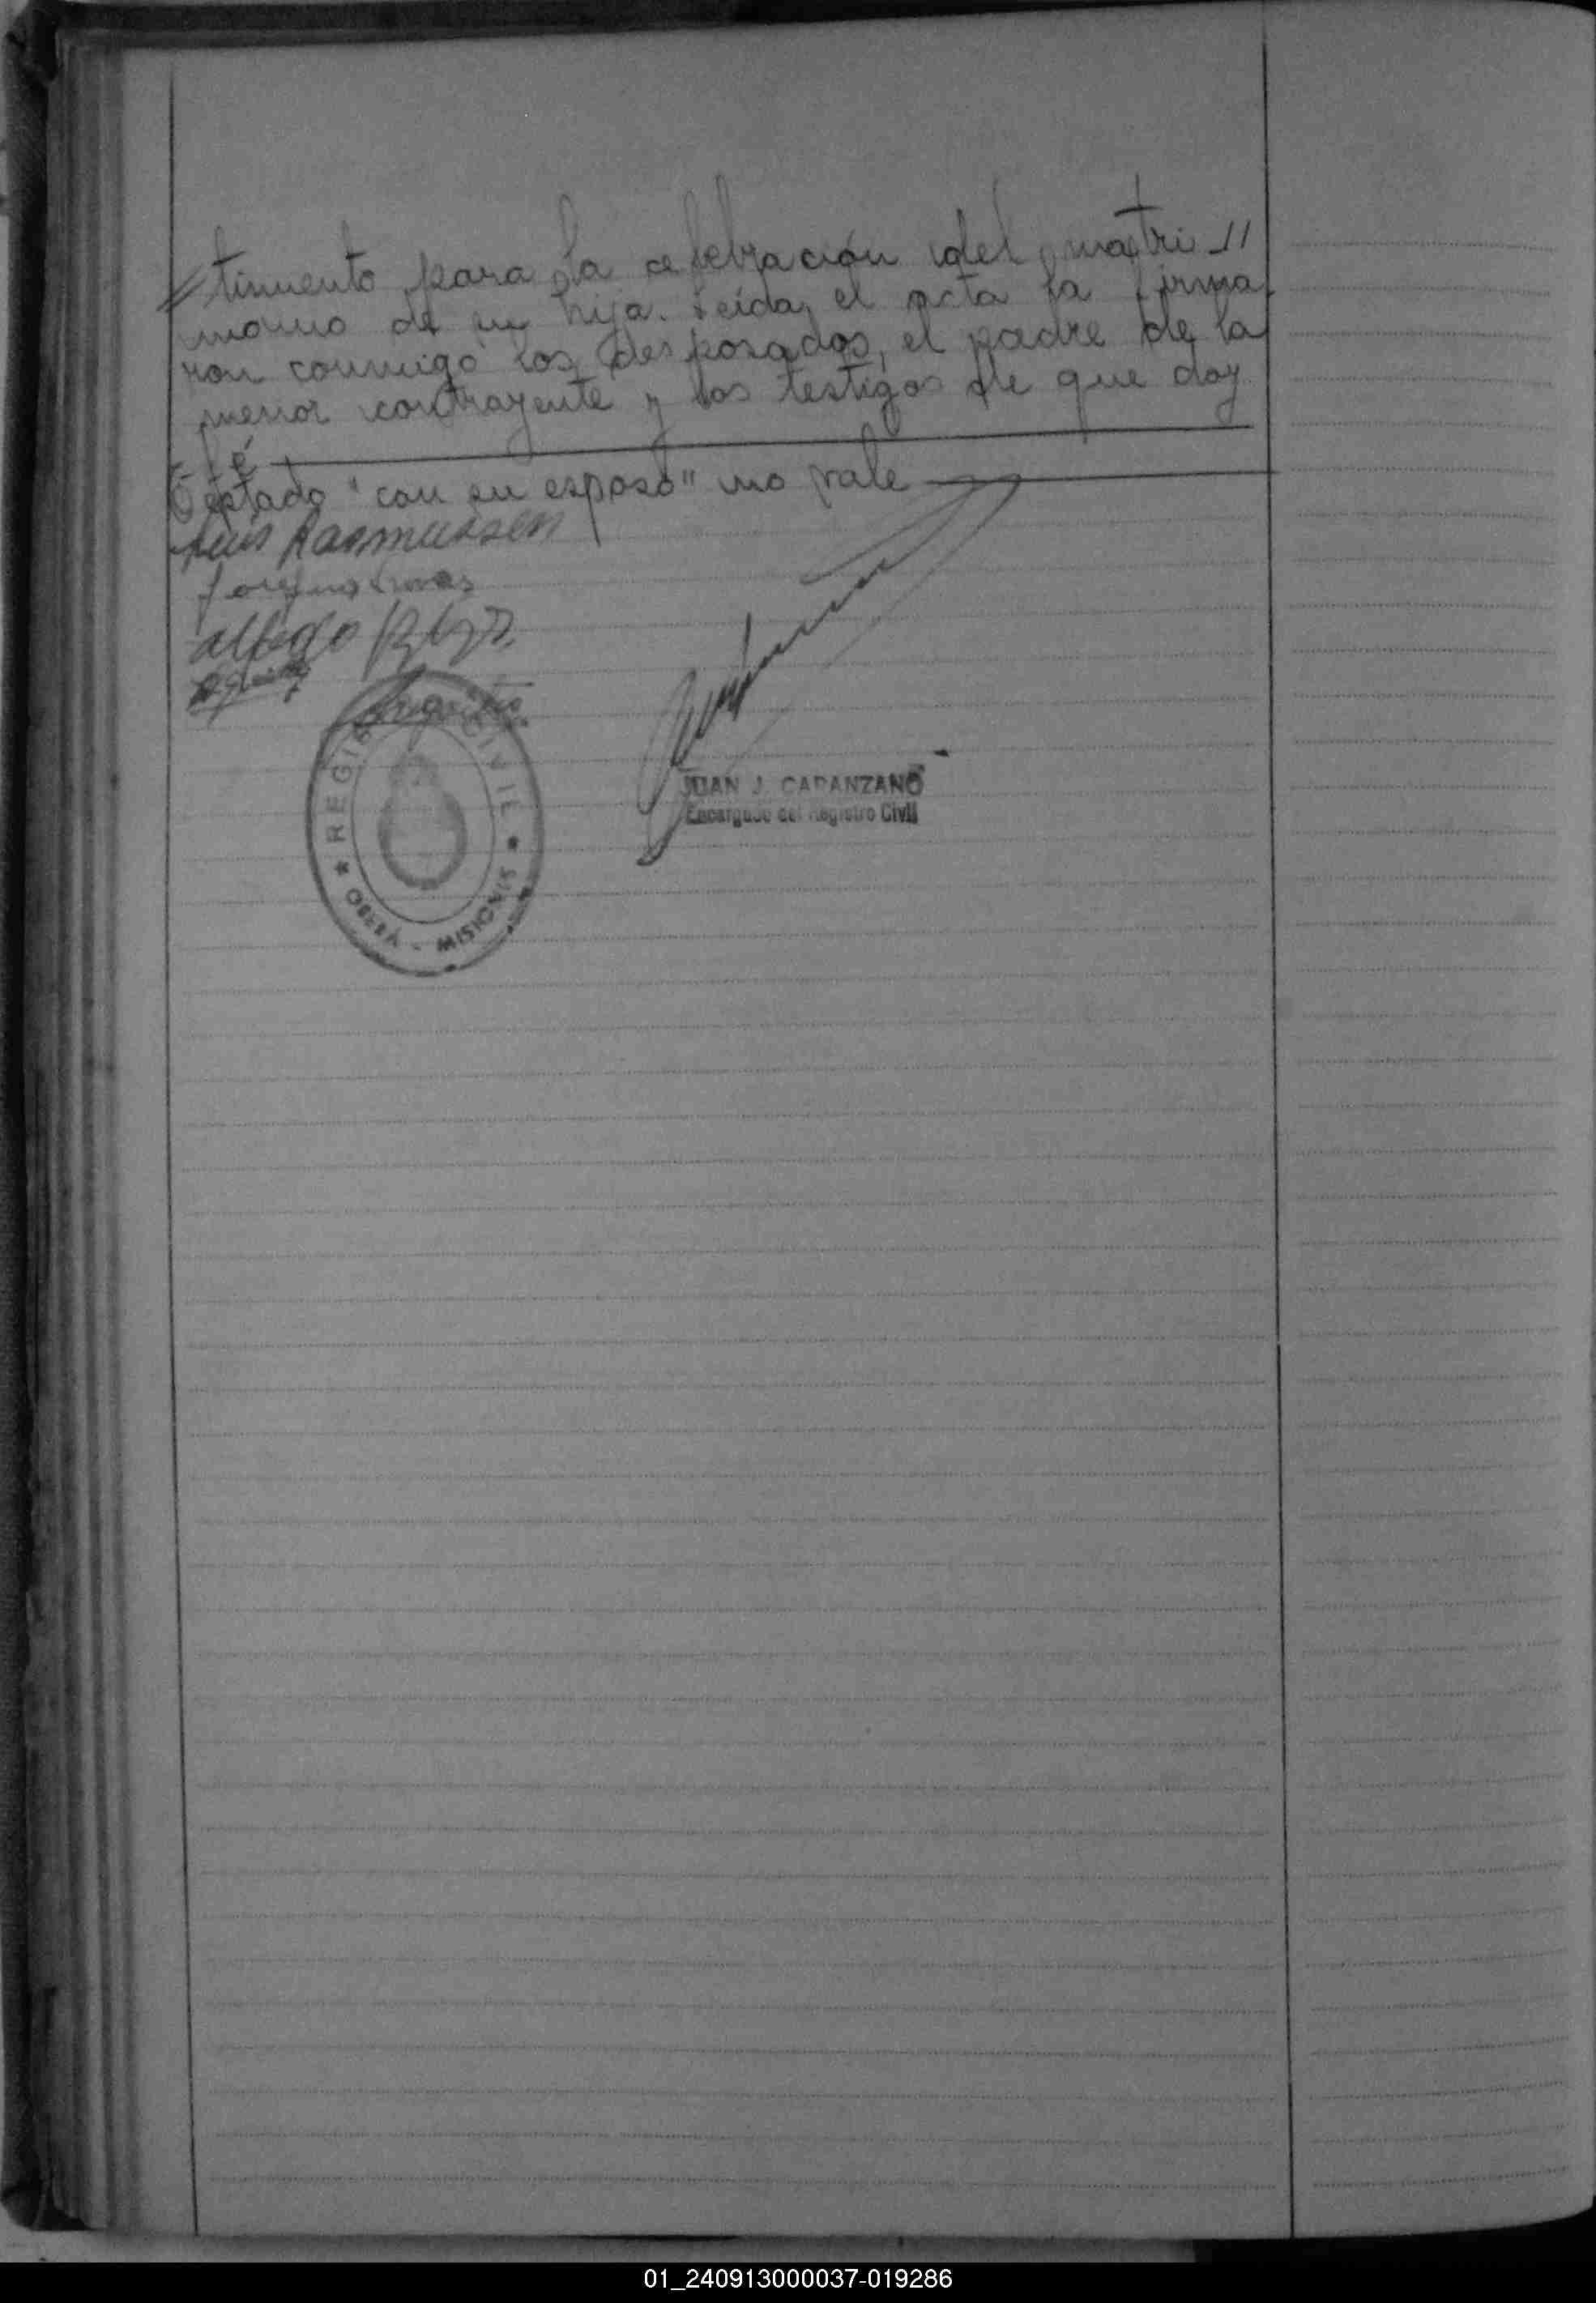 timiento para la celebración del matri //
monio de su hija. Leída el acta la firma
ron conmigo los desposados, el padre de la
menor contrayente y los testigos de que doy
fé
Testado "con su esposo" no vale
Luis Rasmussen
REGISTRO CIVIL
OBERÁ - MISIONES
JUAN J. CAPANZANO
Encargado del Registro Civil
01_240913000037-019286